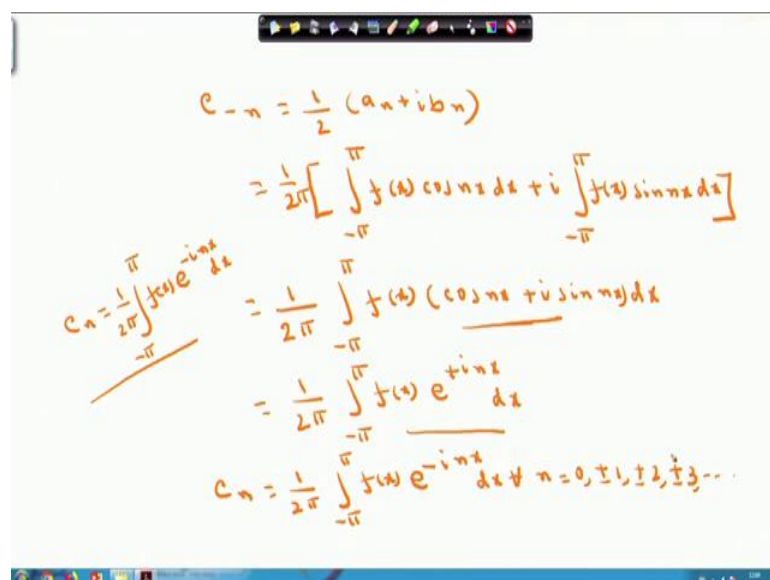 C_{-n} = \frac{1}{2} (a_n + i b_n)
= \frac{1}{2π} [ \int_{-π}^{π} f(x) cos nx dx + i \int_{-π}^{π} f(x) sin nx dx ]
C_n = \frac{1}{2π} \int_{-π}^{π} f(x) e^{-inx} dx
= \frac{1}{2π} \int_{-π}^{π} f(x) (cos nx + i sin nx) dx
= \frac{1}{2π} \int_{-π}^{π} f(x) e^{+inx} dx
C_n = \frac{1}{2π} \int_{-π}^{π} f(x) e^{-inx} dx ∀ n = 0, ±1, ±2, ±3, ...